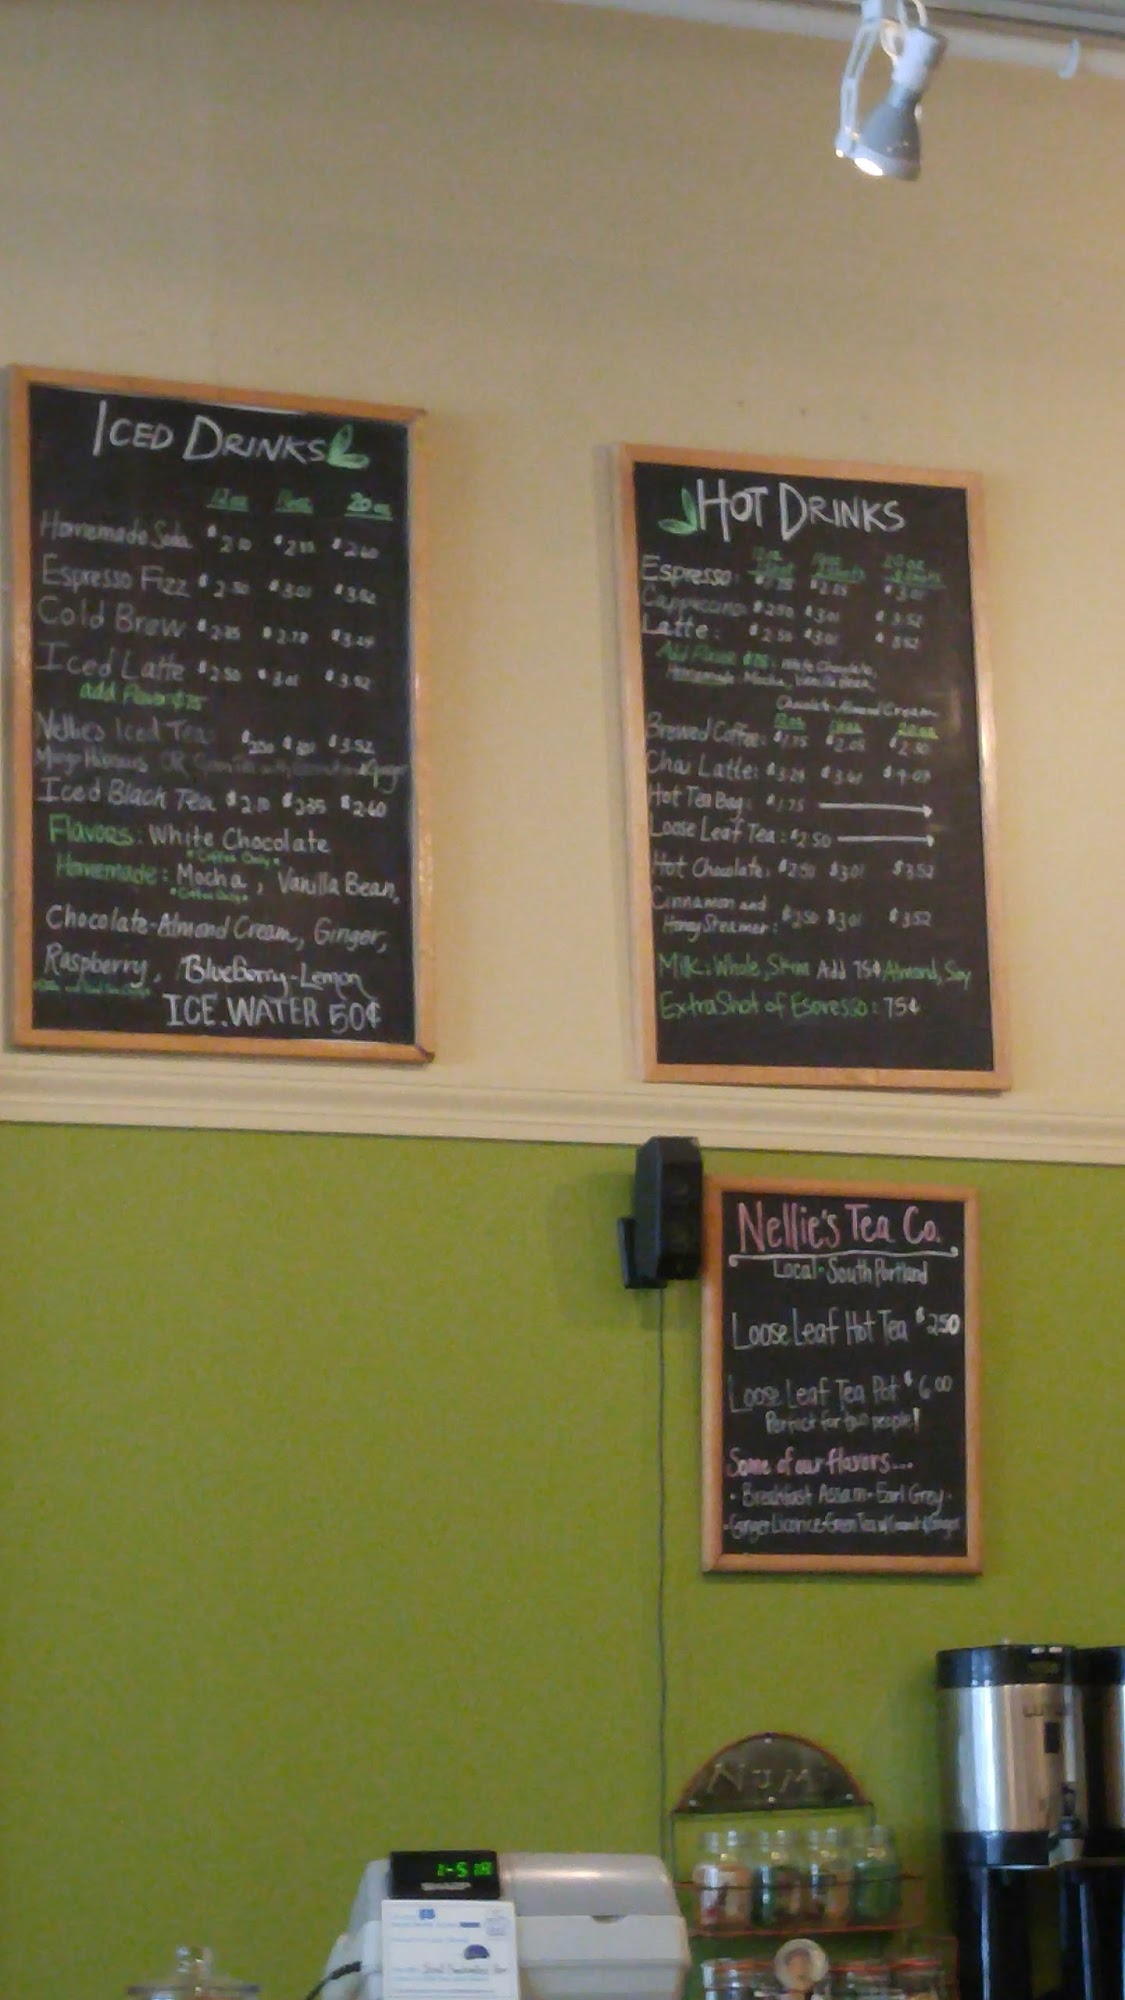 ICED DRINKS
12 oz 16oz 20 oz
Homemade Soda $2.10 $2.60
Espresso Fizz $2.50 $3.01 $3.52
Cold Brew $3.29
Iced Latte $2.50 $3.01 $3.52
add flavor $.75
Nellie's Iced Tea $3.52
OR
Iced Black Tea $2.10 $2.35 $2.60
Flavors: White Chocolate
*Coffee Only*
Homemade: Mocha, Vanilla Bean,
*Coffee Only*
Chocolate-Almond Cream, Ginger,
Raspberry, Blueberry-Lemon
ICE.WATER 50¢
HOT DRINKS
12oz 16oz 20 oz
Espresso: $3.01
Cappuccino: $2.50 $3.01 $3.52
Latte: $2.50 $3.01 $3.52
Add Flavor White Chocolate,
Homemade: Mocha, Vanilla Bean,
Chocolate-Almond Cream
12oz 16oz 20oz
Brewed Coffee: $1.75 $2.05 $2.50
Chai Latte:
Hot Tea Bag: $1.75
Loose Leaf Tea: $2.50
Hot Chocolate: $2.50 $3.01 $3.52
Cinnamon and
Honey Steamer: $2.50 $3.01 $3.52
Milk: Whole, Skim Add 75¢ Almond, Soy
Extra Shot of Espresso: 75¢
Nellie's Tea Co.
Local-South Portland
Loose Leaf Hot Tea $2.50
Loose Leaf Tea Pot $6.00
Perfect for two people!
Some of our flavors...
• Breakfast Assam • Earl Grey •
• Ginger Licorice • Green Tea w/ Coconut & Ginger
1-5 18
SHARP